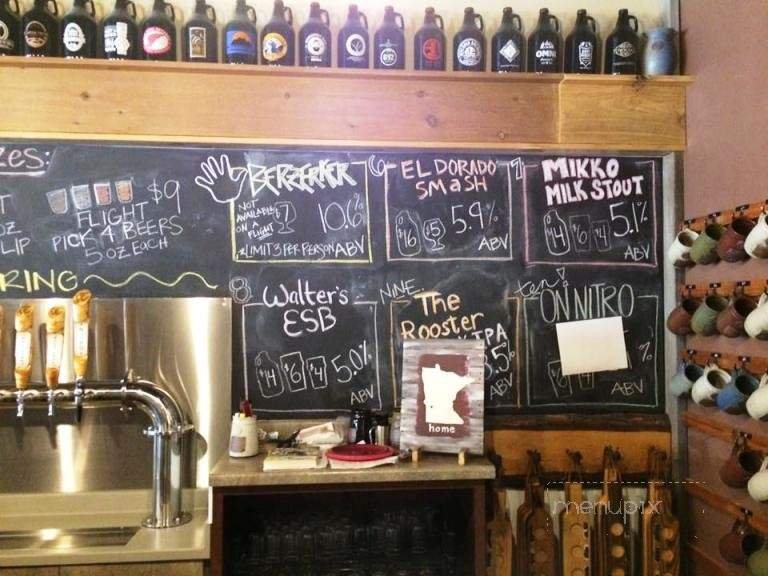 zes:
$9
FLIGHT
PICK 4 BEERS
5 OZ EACH
OZ
LIP
RING
BERZERKER
NOT
AVAILABLE
ON A
FLIGHT
$7
10.6%
LIMIT 3 PER PERSON ABV
6
EL DORADO
SMaSH
$16 $5 5.9%
ABV
7
MIKKO
MILK STOUT
$14 $6 $4 5.1%
ABV
8
Walter's
ESB
$14 $6 $4 5.0%
ABV
NINE.
The
Rooster
IPA
.5%
ABV
ten!
ON NITRO
%
ABV
home
menupix